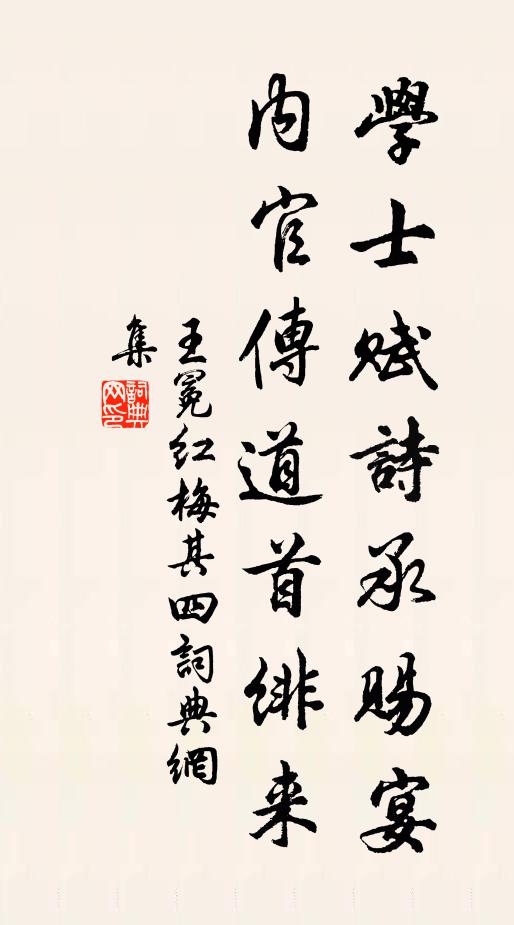 學士賦詩承賜宴
内官傳道首緋来
王冕红梅其四詞典網
集
詞典網印